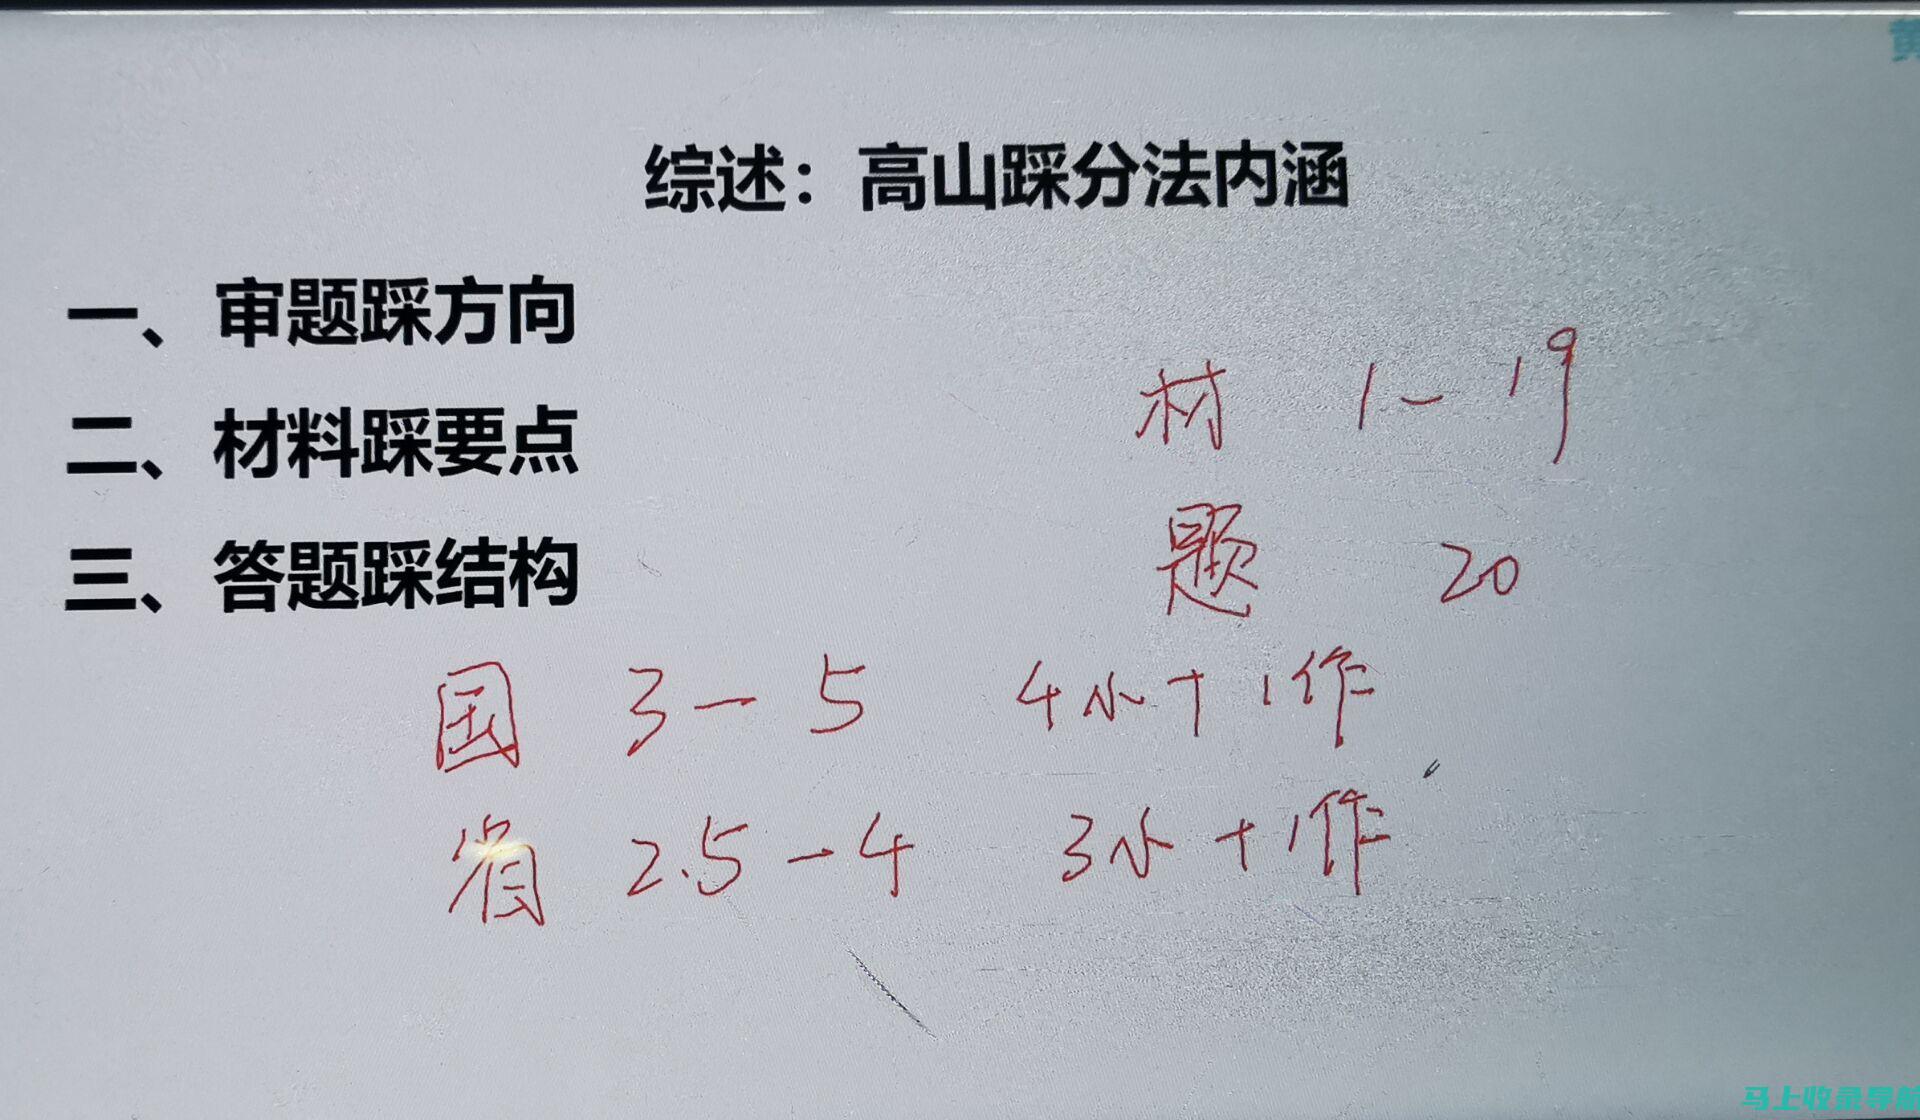 黄
综述：高山踩分法内涵
一、审题踩方向
二、材料踩要点
三、答题踩结构
材 1-19
题 20
国 3-5 4小+1作
省 2.5-4 3小+1作
马上收录导航